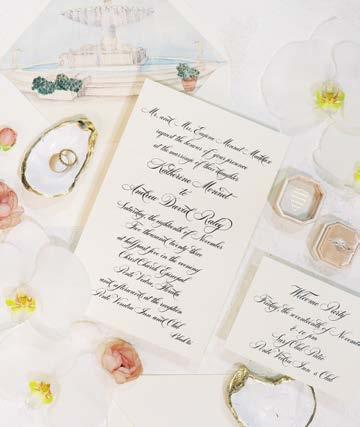 Mr. and Mrs. Eugene Monnet
request the honour of your presence
at the marriage of their daughter
Katherine Monnet
to
Andrew David
Saturday, the eighteenth of November
Two thousand, twenty three
at half past five in the evening
Christ Church Episcopal
Ponte Vedra, Florida
and afterwards at the reception
Ponte Vedra Inn and Club
Welcome Party
Friday, the seventeenth of November
Surf Club Patio
Ponte Vedra Inn & Club